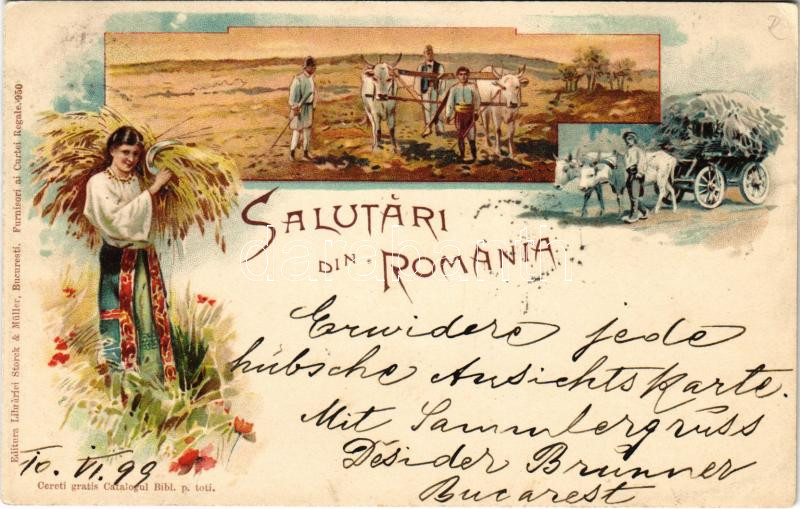 Editura Librăriei Storck & Müller, Bucuresti. Furnisori ai Curtei Regale. 950
SALUTĂRI
DIN ROMANIA
Erwidere jede
hübsche Ansichtskarte.
Mit Sammlergruss
Désider Brunner
Bucarest
10. VI. 99
Cereti gratis Catalogul Bibl. p. toti.